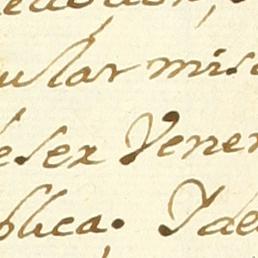 ular mis
esex Vener
blica. I de